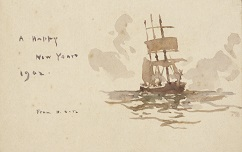 A Happy
New Year
1902.
From